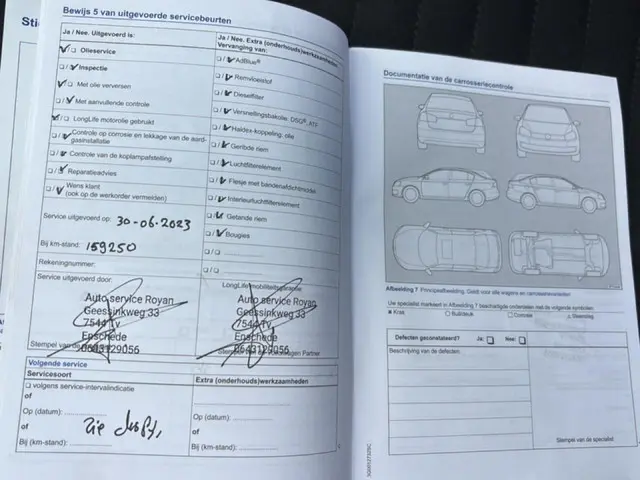 Sti
Bewijs 5 van uitgevoerde servicebeurten
Ja / Nee. Uitgevoerd is:
Olieservice
Inspectie
Met olie verversen
Met aanvullende controle
LongLife motorolie gebruikt
Controle op corrosie en lekkage van de aard-
gasinstallatie
Controle van de koplampafstelling
Reparatieadvies
Wens klant
(ook op de werkorder vermelden)
Service uitgevoerd op: 30-06-2023
Bij km-stand: 159250
Rekeningnummer:
Service uitgevoerd door:
Auto service Royan
Geessinkweg 33
7544 Tv
Enschede
0643129056
Stempel van de
Ja / Nee. Extra (onderhouds)werkzaamheden
Vervanging van:
AdBlue®
Remvloeistof
Dieselfilter
Versnellingsbakolie, DSG®, ATF
Haldex-koppeling, olie
Geribde riem
Luchtfilterelement
Flesje met bandenafdichtmiddel
Interieurluchtfilterelement
Getande riem
Bougies
LongLifemobiliteitsgarantie
Auto service Royan
Geessinkweg 33
7544 Tv
Enschede
0643129056
Partner
Volgende service
Servicesoort
volgens service-intervalindicatie
of
Op (datum):
of
Bij (km-stand):
zie
Extra (onderhouds)werkzaamheden
Op (datum):
of
Bij (km-stand):
Documentatie van de carrosseriecontrole
Afbeelding 7 Principeafbeelding. Geldt voor alle wagens en carrosserievarianten
Uw specialist markeert in Afbeelding 7 beschadigde onderdelen met de volgende symbolen:
Kras
Buil/deuk
Corrosie
Steenslag
Defecten geconstateerd? Ja: Nee:
Beschrijving van de defecten:
Stempel van de specialist